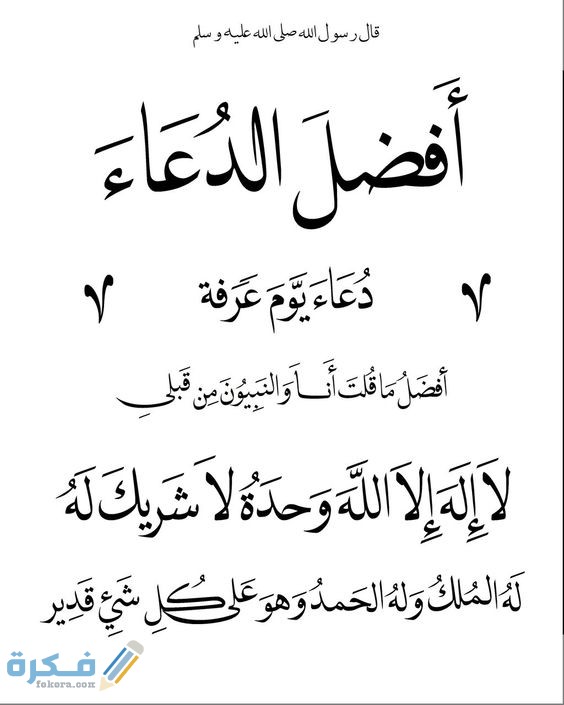 قال رسول الله صلى الله عليه وسلم
أَفضلَ الدُعَاءَ
دُعَاءَ يَوَّمَ عَرَفة
أَفضَلُ مَا قُلتَ أَنــاَ وَالنَبِيُونَ مِن قَبلي
لاَ إِلَهَ إِلاَ اللَّهَ وَحدَةُ لاَ شَريكَ لَهُ
لَهُ المُلكُ وَلهُ الحَمدُ وَهوَ عَلى كُلِ شَئٍ قَدِير
فكرة
fekera.com